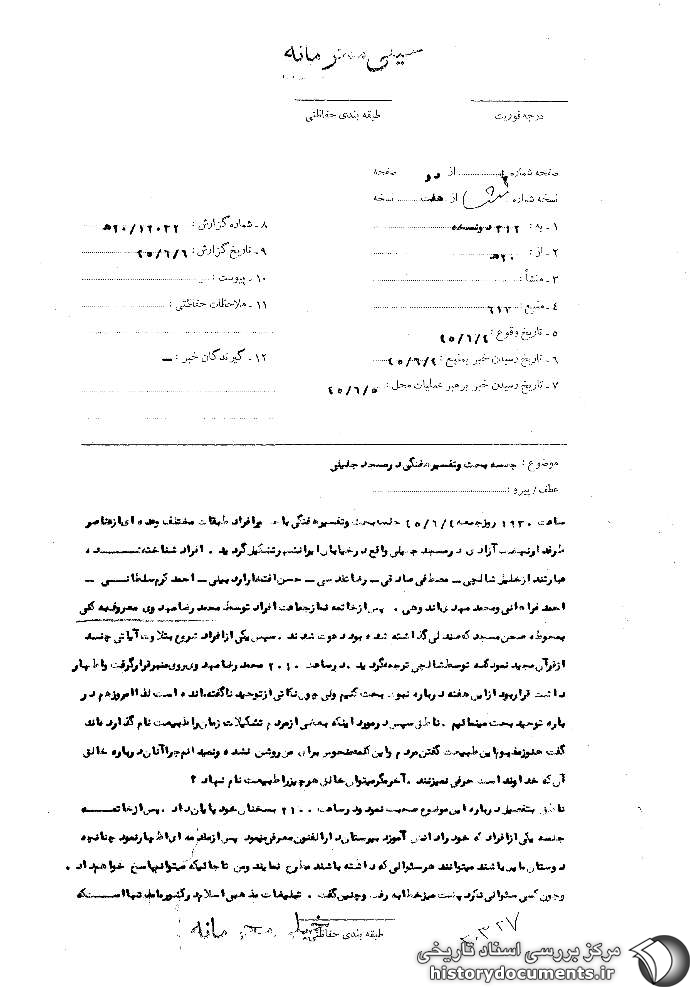 خیلی محرمانه
درجه فوریت
طبقه بندی حفاظتی
صفحه شماره از دو صفحه
نسخه شماره از هفت نسخه
۱ ـ به : ۳۱۲ دونسخه
۲ ـ از : ۲۰ ﻫ
۳ ـ منشأ :
۴ ـ منبع : ۶۱۲
۵ ـ تاریخ وقوع : ۴۵/۶/۴
۶ ـ تاریخ رسیدن خبر بمنبع : ۴۵/۶/۴
۷ ـ تاریخ رسیدن خبر برهبر عملیات محل : ۴۵/۶/۵
۸ ـ شماره گزارش : ۲۰/۱۲۰۲۲ ﻫ
۹ ـ تاریخ گزارش : ۴۵/۶/۶
۱۰ ـ پیوست :
۱۱ ـ ملاحظات حفاظتی :
۱۲ ـ گیرندگان خبر : ـ
موضوع : جلسه بحث وتفسیر هفتگی در مسجد جلیلی
عطف / پیرو :
ساعت ۱۹۳۰ روزجمعه ۴۵/۶/۴ جلسه بحث وتفسیر هفتگی با افراد طبقات مختلف وعده ای ازعناصر
طرفدار نهضت آزادی در مسجد جلیلی واقع در خیابان ایرانشهر تشکیل گردید . افراد شناخته شده
عبارتند از خلیل شالچی ـ مصطفی صادقی ـ رضا ـ حسن افتخار اردبیلی ـ احمد کرم سلطانی ـ
احمد فراهانی ومحمد مهدی . پس از خاتمه نماز جماعت افراد توسط محمد رضا مهدوی معروف به کنی
بمحوطه صحن مسجد که صندلی گذاشته شده بود دعوت شدند . سپس یکی از افراد شروع بتلاوت آیاتی چند
از قرآن مجید نمود که توسط شالچی ترجمه گردید . در ساعت ۲۰۱۰ محمد رضا مهدوی روی منبر قرار گرفت و اظهار
داشت قرار بود از این هفته درباره نبوت بحث کنیم ولی چون نکاتی از توحید ناگفته مانده است لذا امروز هم در
باره توحید بحث مینمائیم . ناطق سپس در مورد اینکه بعضی از مردم تشکیلات زمان را طبیعت نام گذارده اند
گفت هنوز مفهوم این طبیعت گفتن مردم واین کلمه منحوس برای من روشن نشده ونمیدانم چرا آنان درباره خالق
آن که خداوند است حرفی نمیزنند . آخر مگر میتوان خالق هر چیز را طبیعت نام نهاد ؟
ناطق بتفصیل درباره این موضوع صحبت نمود و در ساعت ۲۱۰۰ بسخنان خود پایان داد . پس از خاتمه
جلسه یکی از افراد که خود را دانش آموز دبیرستان دارالفنون معرفی مینمود پس از مقدمه ای اظهار نمود چنانچه
دوستان مایل باشند میتوانند هر سئوالی که داشته باشند مطرح نمایند ومن تا جائیکه میتوانم پاسخ خواهم داد .
وچون کسی سئوالی نکرد پشت میز خطابه رفت وچنین گفت . تبلیغات مذهبی اسلام در کشور ما تنها اینست که
طبقه بندی حفاظتی
خیلی محرمانه
مرکز بررسی اسناد تاریخی
historydocuments.ir